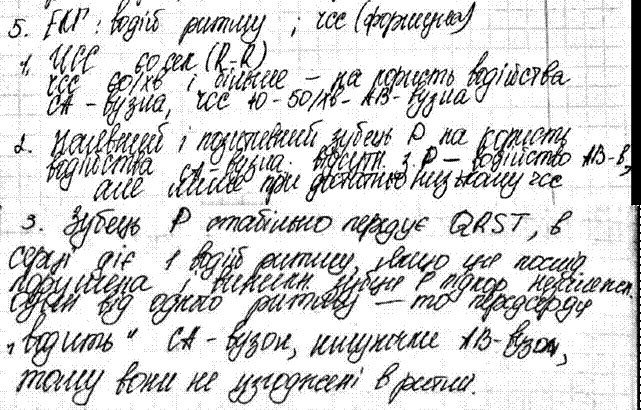 5. ЕКГ: водій ритму ; чсс (формула)
1. ЧСС 60 сек (R-R)
чсс 60/хв і більше - на користь водійства
СА - вузла, чсс 40-50/хв - АВ- вузла
2. Наявний і позитивний зубець Р на користь
водійства СА - вузла. відсутн. з. Р - водійство АВ-в,
але лише при достатньо низькому чсс
3. Зубець Р стабільно передує QRST, в
серці діє 1 водій ритму, якщо ця
порушена і зубця Р
від одного ритму - то передсердя
"водить" СА - вузол, шлуночки АВ-вузол,
тому вони не узгоджені в ритмі.